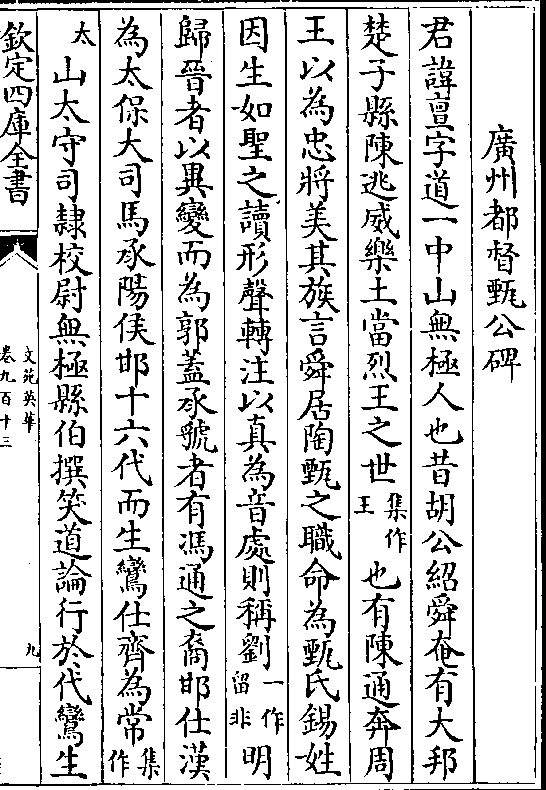 廣州都督甄公碑
君諱亶字道一中山無極人也昔胡公紹舜奄有大邦
楚子縣陳逃威樂土當烈王之世集作王也有陳通奔周
王以為忠將美其族言舜居陶甄之職命為甄氏錫姓
因生如聖之讀形聲轉注以真為音處則稱劉一作留非明
歸晉者以異變而為郭蓋承號者有馮通之裔邯仕漢
為太保大司馬承陽侯邯十六代而生鸞仕齊為常集作
太山太守司隸校尉無極縣伯撰笑道論行於代鸞生
欽定四庫全書
文苑英華
卷九百十三
九